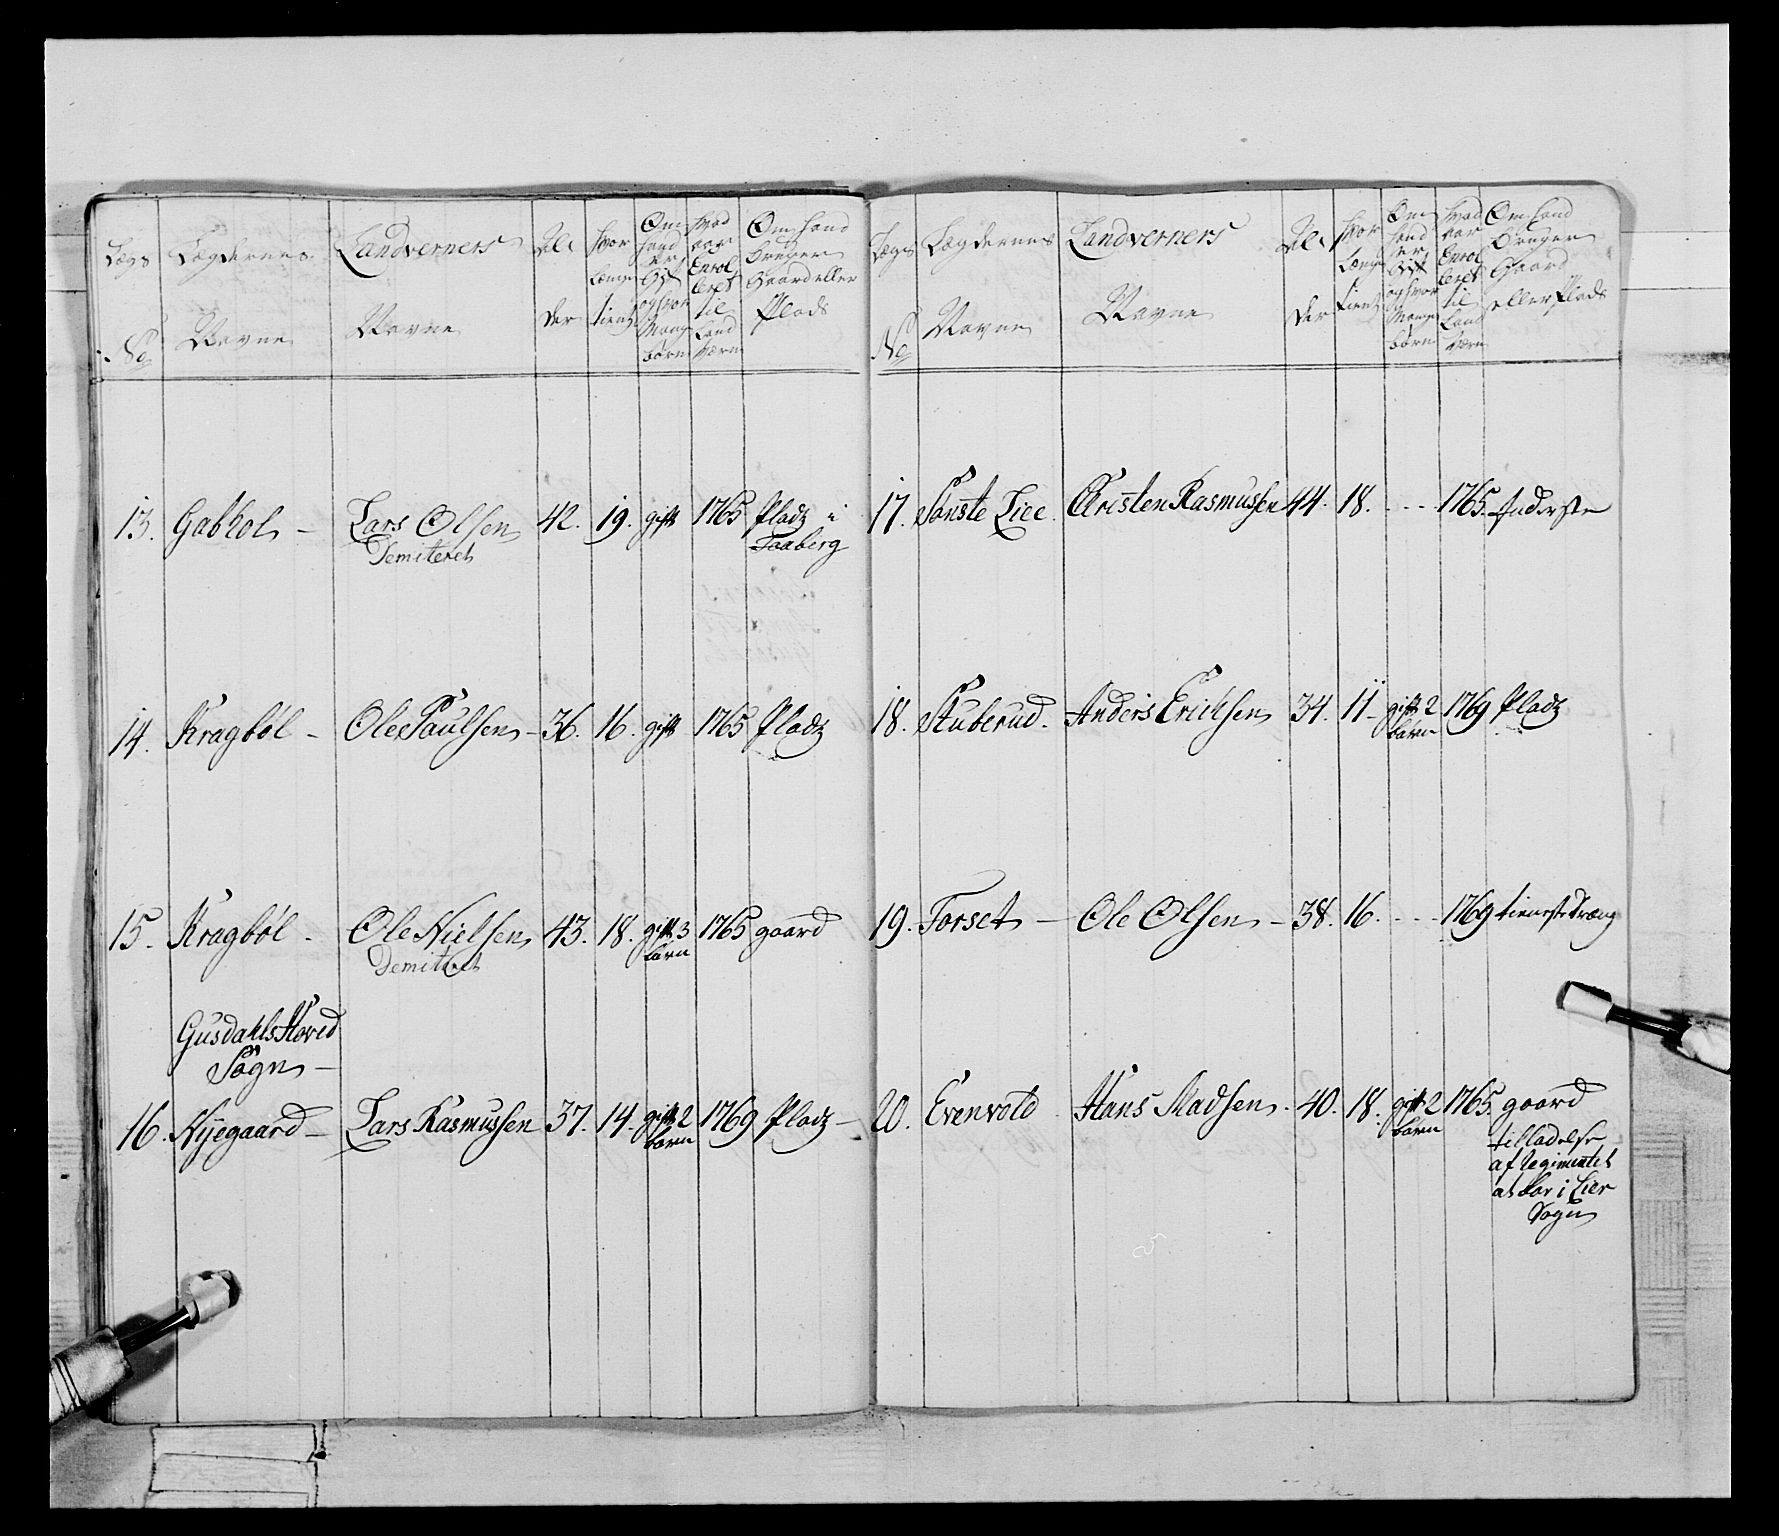 Lægs No | Lægdernes Navne | Landverners Navne | Alder | Hvor længe tient | Om hand er Gift og hvor Mange børn | Hvad aar Enrolleret til Land Værn | Om hand bruger Gaard eller Plads
13. Gabhol – Lars Olsen 42. 19. gift 1765 Pladz i
Demiteret Faaberg
14. Kragbøl – Ole Paulsen – 36. 16. gift 1765 Pladz
15. Kragbøl – Ole Nielsen 43. 18. gift 3 1765 gaard
Demiteret børn
Gusdahls Hoved
Sogn –
16. Nÿegaard – Lars Rasmussen 37. 14. gift 2 1769 Pladz –
børn
Lægs No | Lægdernes Navne | Landverners Navne | Alder | Hvor Længe tient | Om hand er Gift og hvor Mange børn | Hvad aar Enrolleret til Land Værn | Om hand bruger Gaard eller Plads
17. Sønste Liee Christen Rasmussen 44. 18. - - - 1765.
18. Stuberud. Anders Erichsen 34. 11 – gift 2 1769 Pladz
børn
19. Forset – Ole Olsen – 38. 16. - - - 1769 tieneste Dræng
20. Evenvold Hans Madsen. 40. 18. gift 2 1765. gaard
børn tilladelse
af Regimentet
at boe i Lier
Sogn